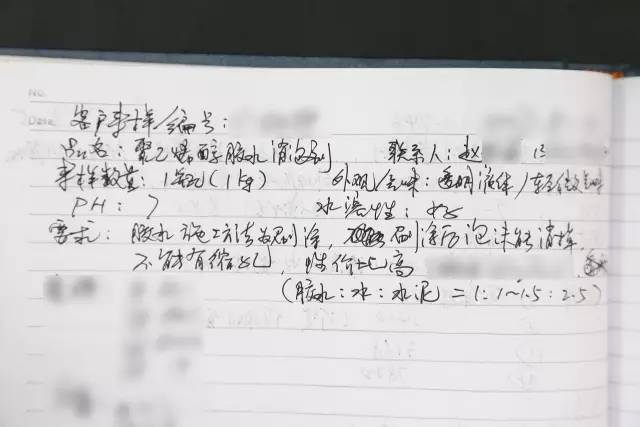 No.
Date.
客户来样/编号：
品名：聚乙烯醇胶水消泡剂 联系人：赵
来样数量：1瓶(1kg) 外观/气味：透明液体/轻微气味
PH：7 水溶性：好
要求：胶水施工方法为刷涂，刷涂后泡沫能清掉，
不能有缩孔，性价比高
(胶水：水：水泥 = 1：1~1.5：2.5)